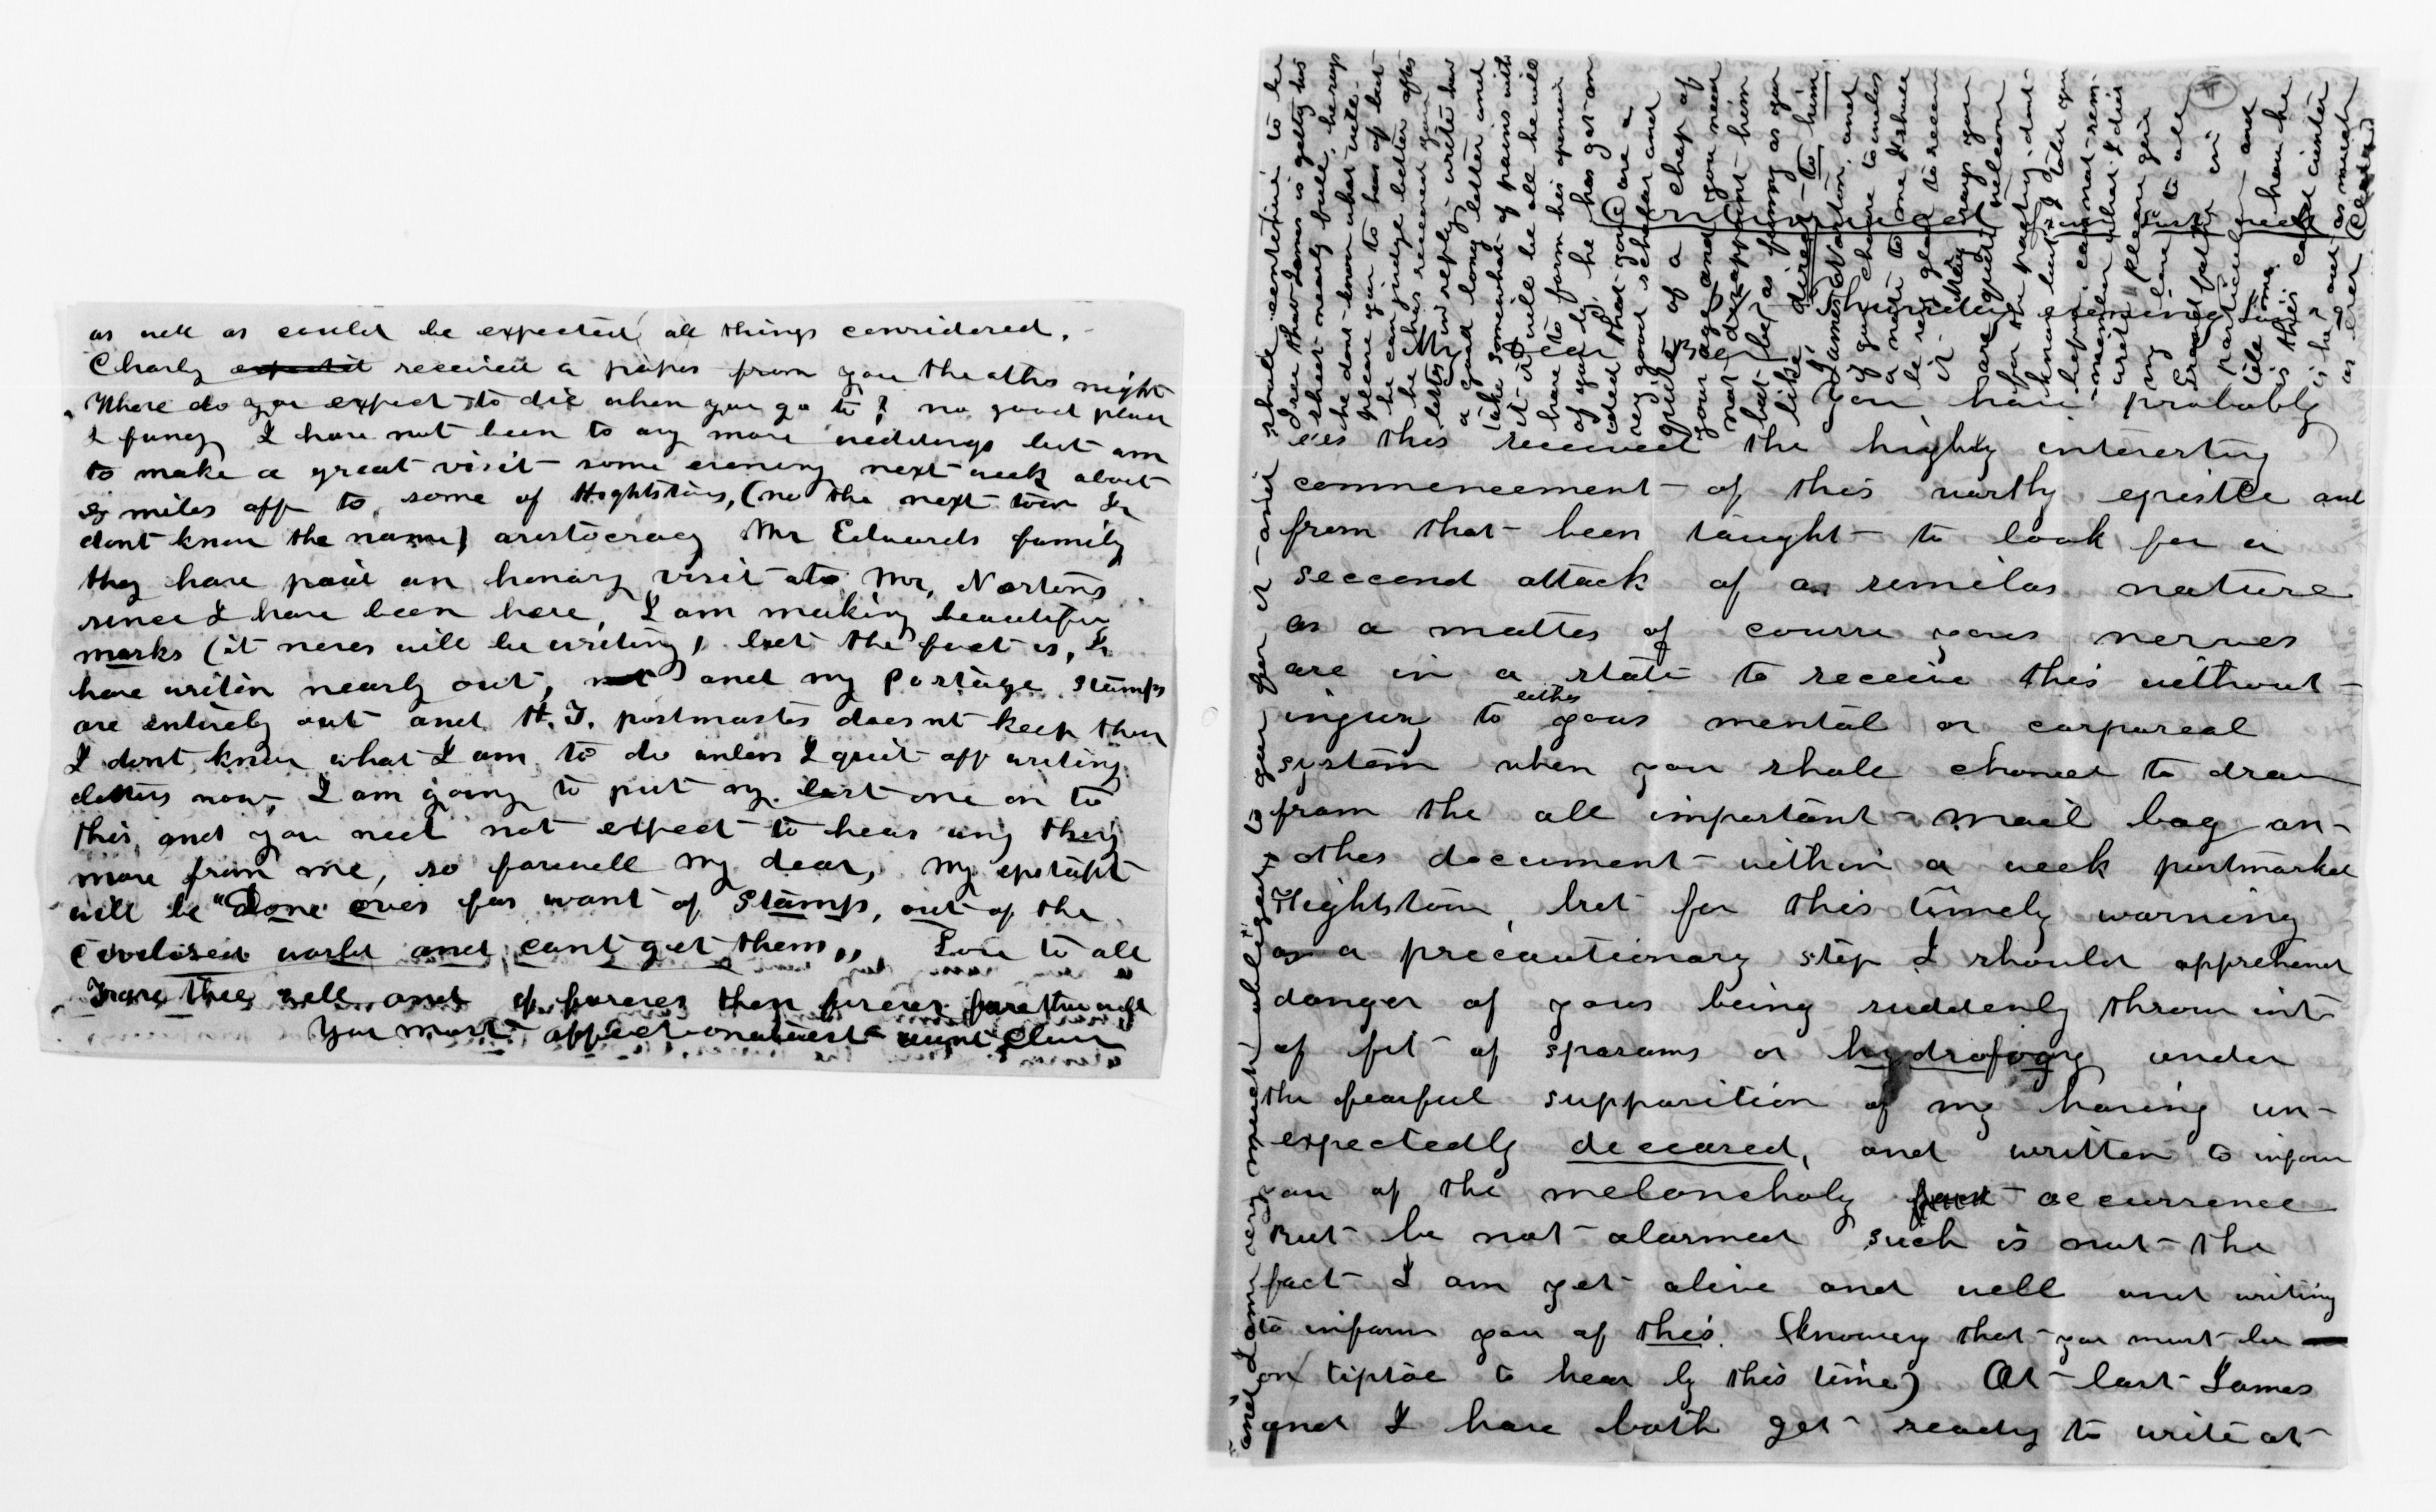 as well as could be expected all things considered.
Charly expected received a paper from you the other night
Where do you expect to die when you go to, no good place
I fancy I have not been to any more weddings but am
to make a great visit some evening next week about
miles off to some of Hightstowns, (no the next town I
dont know the name) aristocracy Mr Edwards family
they have paid an honary visit to Mr, Nortons
since I have been here, I am making beautiful
marks (it never will be writing) but the fact is, I
have writen nearly out, and my Postage stamps
are entirely out and H.T. postmaster doesnt keep them
I dont know what I am to do unless I quit off writing
letters now, I am going to put my last one on to
this, and you need not expect to hear any thing
more from me, so farewell my dear, my epetaph
will be "Done over for want of Stamps, out of the
civilised world and cant get them,, Love to all
Fare thee well and if forever then forever fare thee well
Your most affectionatest aunt Clara
4
Thursday evening
My Dear
You have probably
ers this received the highly interesting
commencement of this worthy epistle and
from that been taught to look for a
seccond attack of a similar nature
as a matter of course your nerves
are in a state to receive this without
injury to either your mental or corporeal
system when you shall chance to draw
from the all important mail bag an-
other document within a week postmarked
Hightstown, but for this timely warning
as a precautionary step I should apprehend
danger of your being suddenly thrown into
of fit of spasams or hydrofogy under
the fearful supposition of my having un-
expectedly deceased, and written to inform
you of the melancholy fact occurrence
But be not alarmed such is not the
fact I am yet alive and well and writing
to inform you of this. (knowing that you must be
on tiptoe to hear by this time) At last James
and I have both get ready to write at
and I am very much obliged to you for it and shall contrive to be
I see that James is getting his
sheet nearly full, he says
he dont know what will
please you to hear of but
he can judge better after
he has received your
letter in reply, write him
a good long letter and
take somewhat of pains with
it it will be all he will
have to form his opinion
of you by, he has got an
idea that you are a
very good scholar and
quite of a chap of
your age and you need
not disappoint him
but be as funny as you
like, direct to him
James Norton and
if you chose to enclose
a note to me I shall
be very glad to receive
it. May says you
are quite welcom
for the pastry, dont
know but I told you
before, cannot rem-
member what I did
write please give
my love to all
Grandfather in
particular and
tell me how he
is this cold winter
is he out as much
as ever Clara